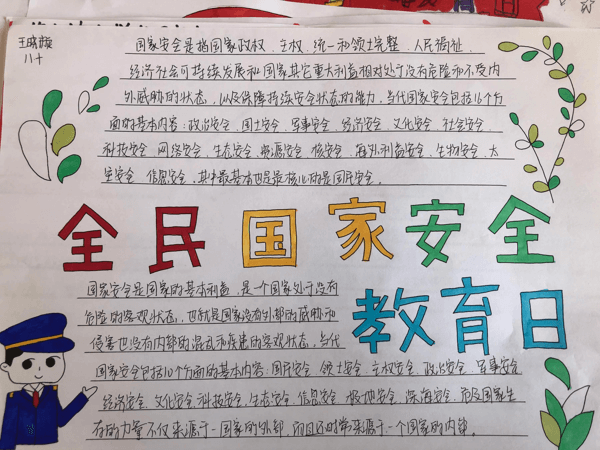 八十
国家安全是指国家政权、主权、统一和领土完整、人民福祉、
经济社会可持续发展和国家其它重大利益相对处于没有危险和不受内
外威胁的状态，以及保障持续安全状态的能力，当代国家安全包括16个方
面的基本内容：政治安全、国土安全、军事安全、经济安全、文化安全、社会安全、
科技安全、网络安全、生态安全、资源安全、核安全、海外利益安全、生物安全、太
空安全、信息安全，其中最基本也是最核心的是国民安全。
全民国家安全
教育日
国家安全是国家的基本利益，是一个国家处于没有
危险的客观状态，也就是国家没有外部的威胁和
侵害也没有内部的混乱和疾患的客观状态，当代
国家安全包括10个方面的基本内容：国民安全、领土安全、主权安全、政治安全、军事安全、
经济安全、文化安全、科技安全、生态安全、信息安全、极地安全、深海安全，危及国家生
存的力量不仅来源于一国家的外部，而且还时常来源于一个国家的内部。